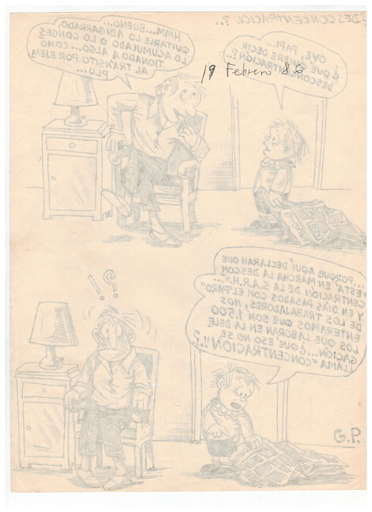 ¿DESCONCENTRACION?..
19 Febrero 86
OYE, PAPI..
¿QUE QUIERE DECIR
DESCONCENTRACIÓN?..
HMM... BUENO...
QUITARLE LO
LO ACUMULADO O LO CONGES
TIONADO A ALGO... COMO
AL TRANSITO POR EJEM
PLO...
PORQUE AQUÍ DECLARAN QUE
"ESTA" EN MARCHA LA DESCON
CENTRACIÓN DE LA S.A.R.H."...
Y EN DIAS PASADOS CON EL
DE LOS TRABAJADORES, NOS
ENTERAMOS QUE SON 1,500
LOS QUE LABORAN EN LA DELE
GACIÓN...¿QUE ESO NO SE
LLAMA "CONCENTRACION"?..